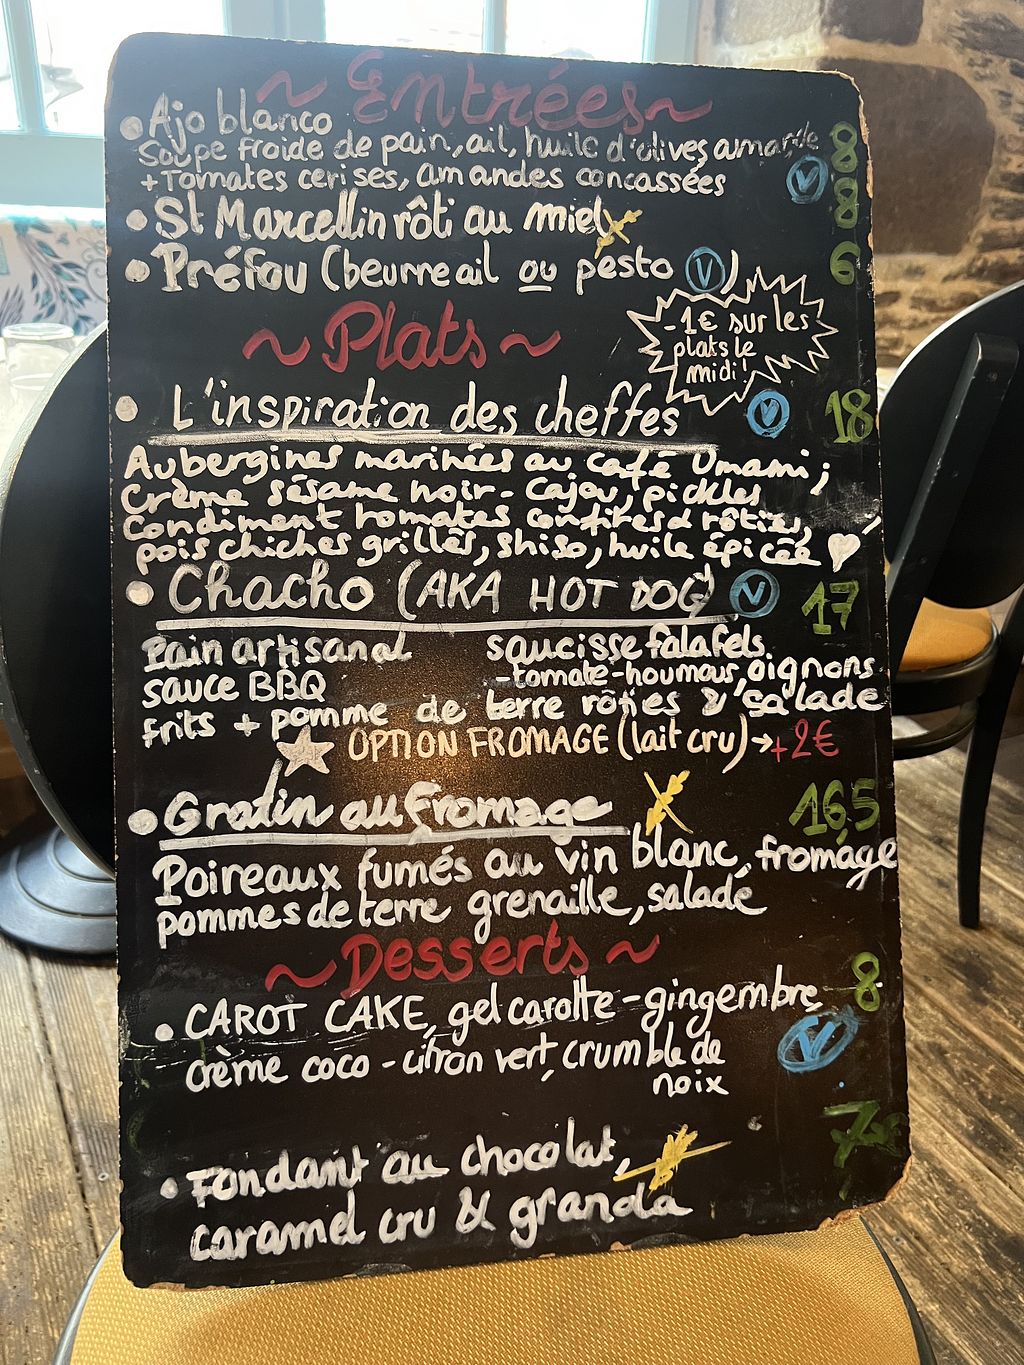 ~ Entrées ~
• Ajo blanco
Soupe froide de pain, ail, huile d'olives amande 8
+ Tomates cerises, amandes concassées V
• St Marcellin rôti au miel 8
• Préfou (beurre ail ou pesto V) 6
~ Plats ~
-1€ sur les
plats le
midi!
• L'inspiration des cheffes V 18
Aubergines marinées au café Umami ;
Crème sésame noir - cajou, pickles
Condiment tomates confites & rôties,
pois chiches grillés, shiso, huile épicée ♥
• Chacho (AKA HOT DOG) V 17
Pain artisanal saucisse falafels.
sauce BBQ -tomate-houmous, oignons
frits + pomme de terre rôties & salade
OPTION FROMAGE (lait cru) → +2€
• Gratin au fromage 16,5
Poireaux fumés au vin blanc, fromage
pommes de terre grenaille, salade
~ Desserts ~
• CAROT CAKE, gel carotte - gingembre 8
crème coco - citron vert, crumble de V
noix
• Fondant au chocolat, 7
caramel cru & granola